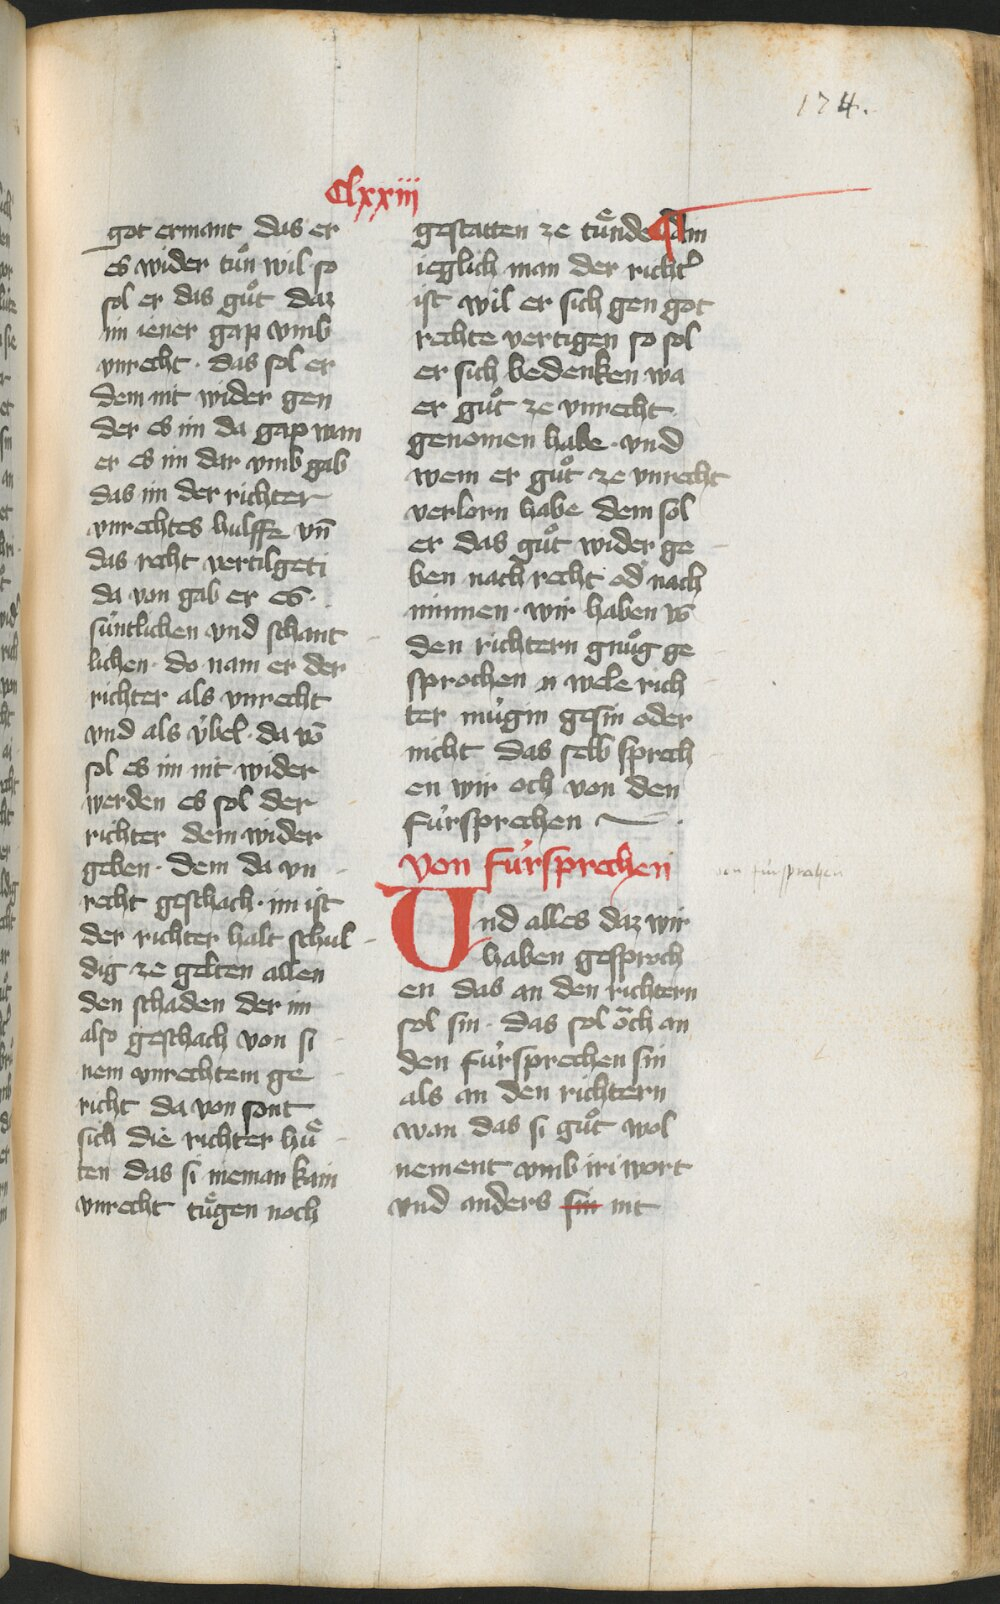 174.
Clxxiij
got ermant das er
es wider tuͦn wil so
sol er das guͦt daz
im iener gap vmb
vnrecht · das sol er
dem nit wider gen
der es im da gap wan
er es im dar vmb gab
das im der richter
vnrechtes hulffe vn̄
das recht vertilgeti
da von gab er es ·
súntlichen vnd schant
lichen · do nam er der
richter als vnrecht
vnd als v́bel · da vō
sol es im nit wider
werden es sol der
richter dem wider
geben · dem da vn
recht geschach · im ist
der richter halt schul
dig ze gelten allen
den schaden der im
also geschach von si
nem vnrechtem ge
richt da von sont
sich die richter huͤ
ten das si nieman kain
vnrecht tuͤgen noch
gestatten ze tuͤnde ¶ Am
ieglich man der richt͛
ist wil er sich gen got
rechte vertigen so sol
er sich bedenken wa
er guͦt ze vnrecht
genomen habe · vnd
wem er guͦt ze vnrecht
verlorn habe dem sol
er das guͦt wider ge
ben nach recht od͛ nach
minnen · wir haben vō
den richtern gnuͦg ge
sprochen n wele rich
ter múgin gesin oder
nicht das selb sprech
en wir och von den
fúrsprechen
von fúrsprechen
von fúrsprechen
Und alles daz wir
haben gesproch
en das an den richtern
sol sin · das sol oͮch an
den fúrsprechen sin
als an den richtern
wan das si guͦt wol
nement vmb iri wort
vnd anders sin nit